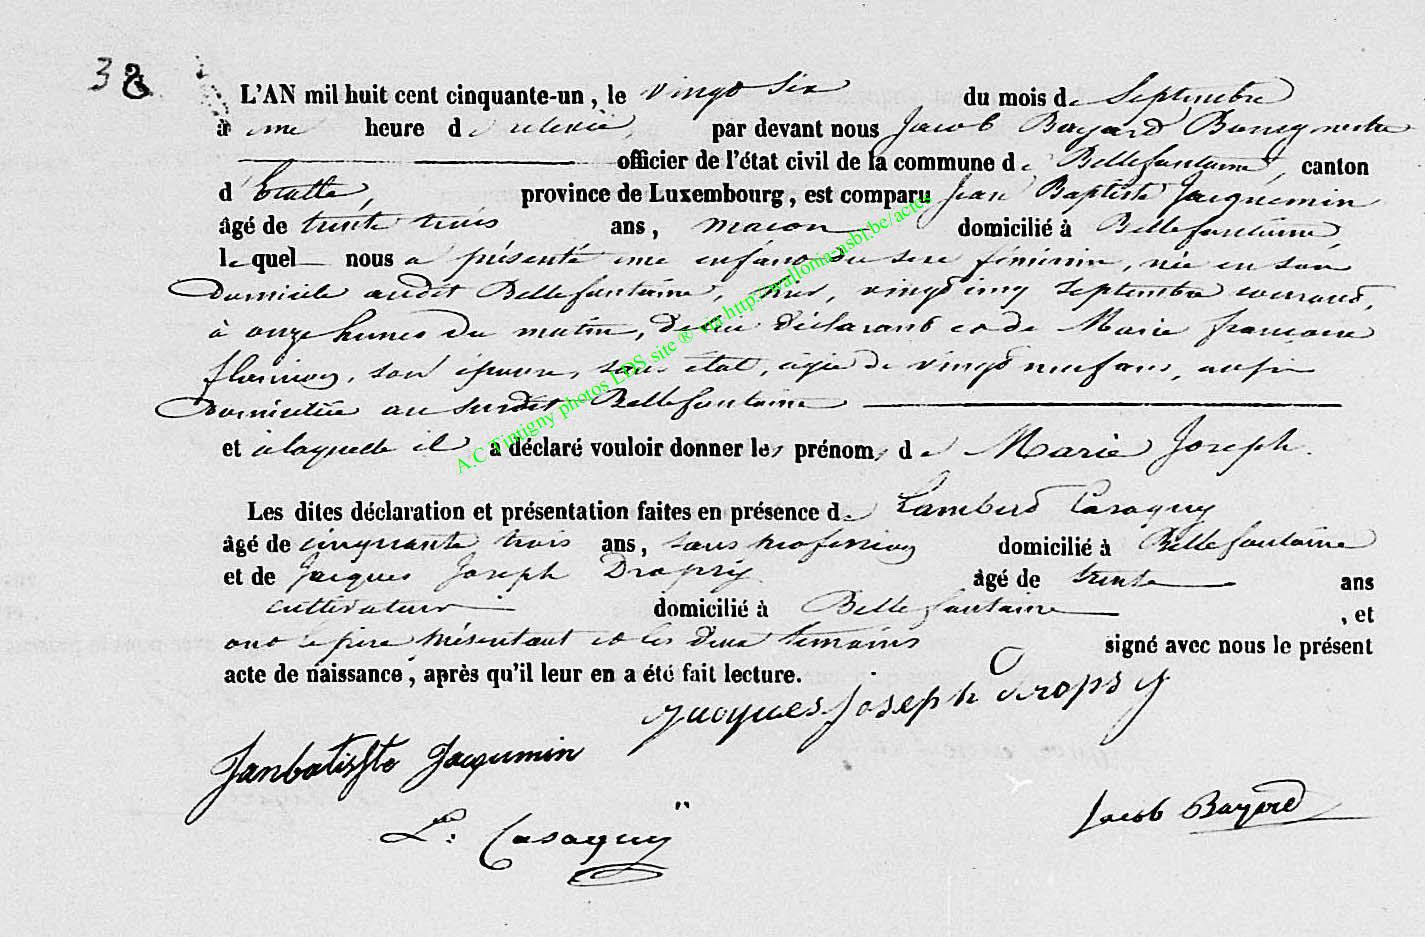 38
L'AN mil huit cent cinquante-un, le vingt six du mois de Septembre
à une heure de relevée, par devant nous Jacob Bayard Bourgmestre
officier de l'état civil de la commune de Bellefontaine, canton
d'Etalle, province de Luxembourg, est comparu Jean Baptiste Jacquemin
âgé de trente trois ans, maçon domicilié à Bellefontaine,
lequel nous a présenté une enfant du sexe féminin, née en son
domicile audit Bellefontaine, hier, vingt cinq Septembre courant,
à onze heures du matin, de lui déclarant et de Marie françoise
son épouse, sans état, agée de vingt neuf ans, aussi
domiciliée au susdit Bellefontaine
et à laquelle il a déclaré vouloir donner les prénoms de Marie Joseph.
Les dites déclaration et présentation faites en présence de Lambert Casaquy
âgé de cinquante trois ans, sans profession domicilié à Bellefontaine
et de Jacques Joseph Dropsy âgé de trente ans
cultivateur domicilié à Bellefontaine, et
ont le père présentant et les deux témoins signé avec nous le présent
acte de naissance, après qu'il leur en a été fait lecture.
Jacques Joseph Dropsy
Janbatisste Jacqumin
Jacob Bayard
L. Casaquy
A.C Tintigny photos LDS site ® via http://wallonia-asbl.be/actes